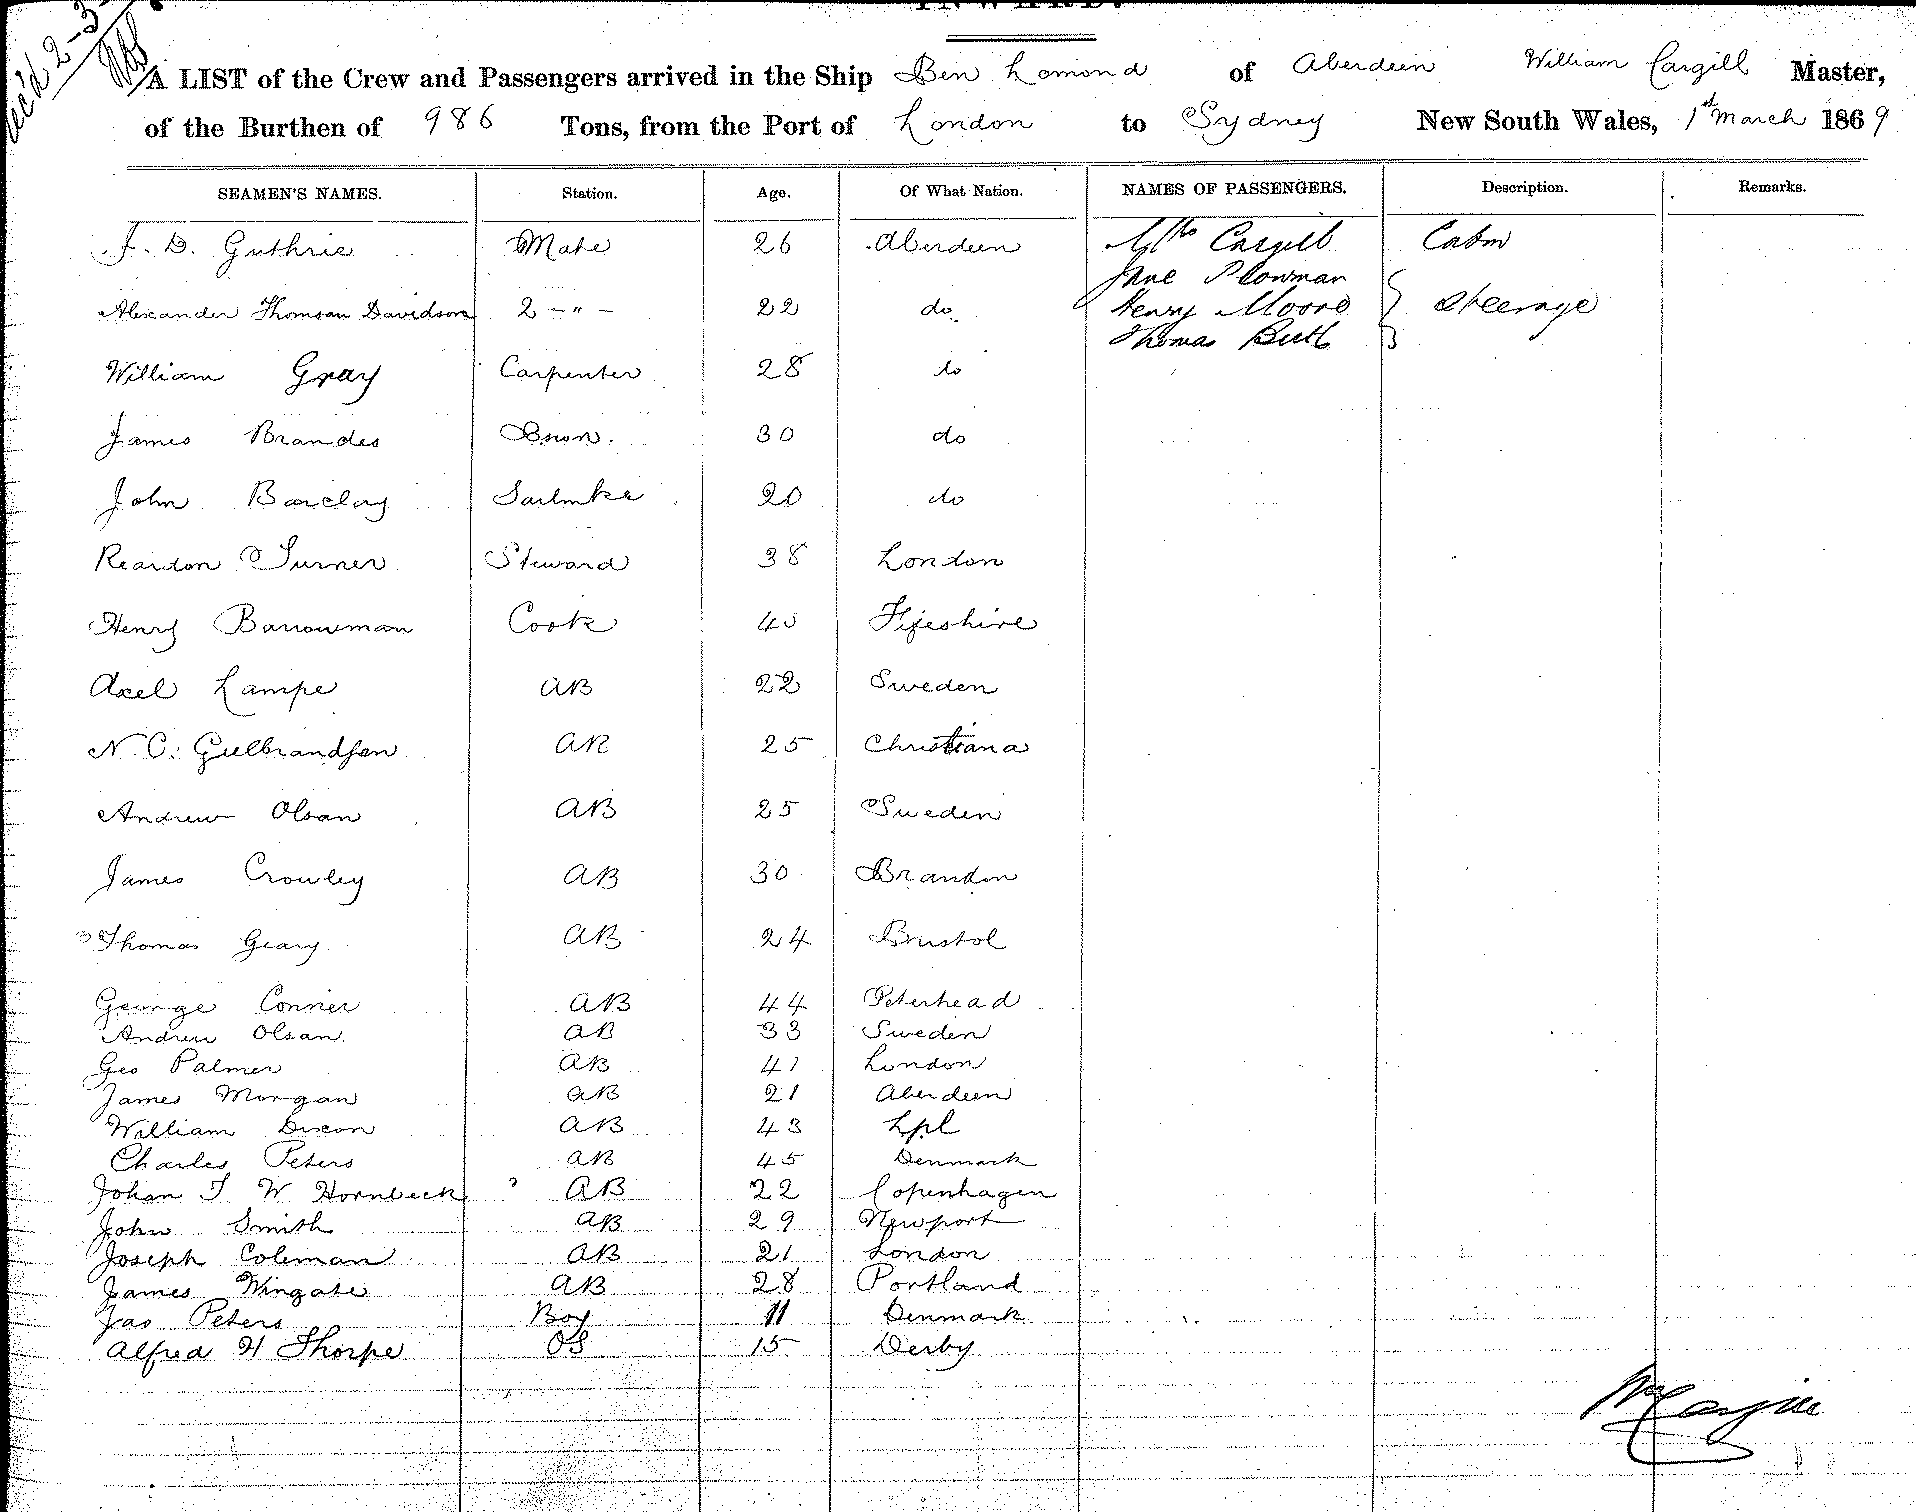 INWARD.
Rec'd 2-3-
A LIST of the Crew and Passengers arrived in the Ship Ben Lomond of Aberdeen William Cargill Master,
of the Burthen of 986 Tons, from the Port of London to Sydney New South Wales, 1st March 1869
SEAMEN'S NAMES. Station. Age. Of What Nation. NAMES OF PASSENGERS. Description. Remarks.
J. D. Guthrie Mate 26 Aberdeen Mrs Cargill Cabin
Jane Plowman
Alexander Thomson Davidson 2 - " - 22 do Henry Moore Steerage
Thomas Butt
William Gray Carpenter 28 do
James Brandes Bswn. 30 do
John Barclay Sailmke 20 do
Reardon Turner Steward 38 London
Henry Barrowman Cook 40 Fifeshire
Axel Lampe AB 22 Sweden
N. C. Gulbrandsen AB 25 Christiana
Andrew Olsan AB 25 Sweden
James Crowley AB 30 Brandon
Thomas Geary AB 24 Bristol
George Conner AB 44 Peterhead
Andrew Olsan AB 33 Sweden
Geo Palmer AB 41 London
James Morgan AB 21 Aberdeen
William Dixon AB 43 Lpl
Charles Peters AB 45 Denmark
Johan T W Hornbeck AB 22 Copenhagen
John Smith AB 29 Newport
Joseph Coleman AB 21 London
James Wingate AB 28 Portland
Jas Peters Boy 11 Denmark
Alfred H Thorpe OS 15 Derby
Wm Cargill